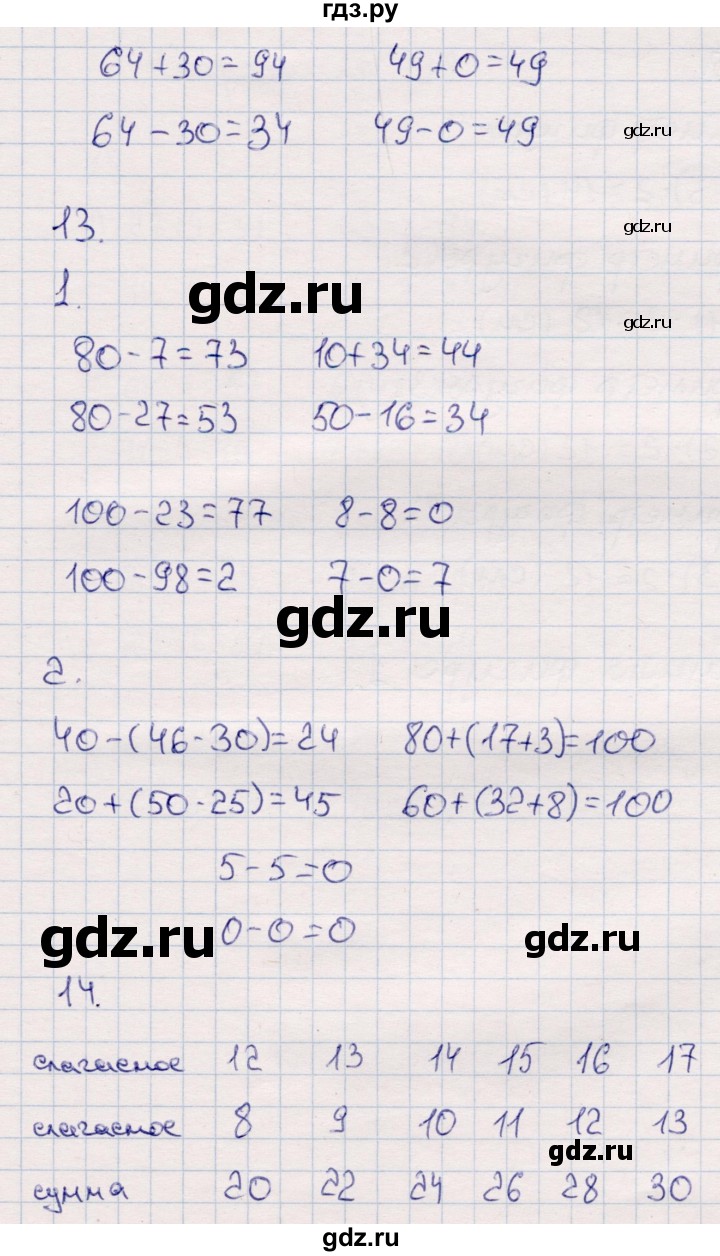 гдз.ру
64+30=94 49+0=49
64-30=34 49-0=49 gdz.ru
13. gdz.ru
1. gdz.ru gdz.ru
80-7=73 10+34=44
80-27=53 50-16=34
100-23=77 8-8=0
100-98=2 7-0=7
gdz.ru
2.
40-(46-30)=24 80+(17+3)=100
20+(50-25)=45 60+(32+8)=100
5-5=0
gdz.ru 0-0=0 gdz.ru
14.
слагаемое 12 13 14 15 16 17
слагаемое 8 9 10 11 12 13
gdz.ru
сумма 20 22 24 26 28 30
гдз.ру